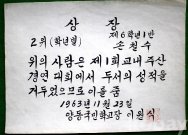 상장
제6학년1반
2위(학년별) 손철수
위의 사람은 제1회교내 주산
경연 대회에서 두서의 성적을
거두었으므로 이를 줌
1963년 11월 23일
양동국민학교장 이원식